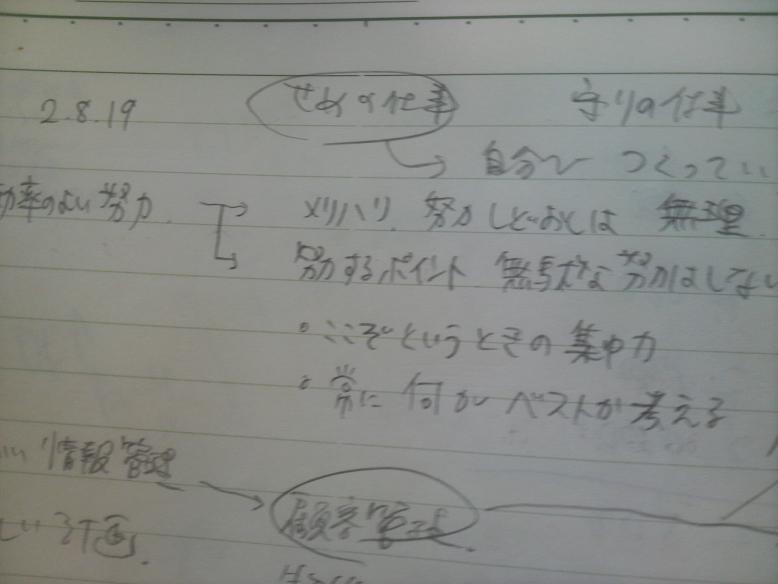 2.8.19 せめの仕事 守りの仕事
自分で つくってい
効率のよい努力 メリハリ 努力しどおしは 無理
努力するポイント 無駄な努力はしない
・ここぞというときの集中力
・常に 何が ベストか 考える
情報管理
顧客管理
い計画